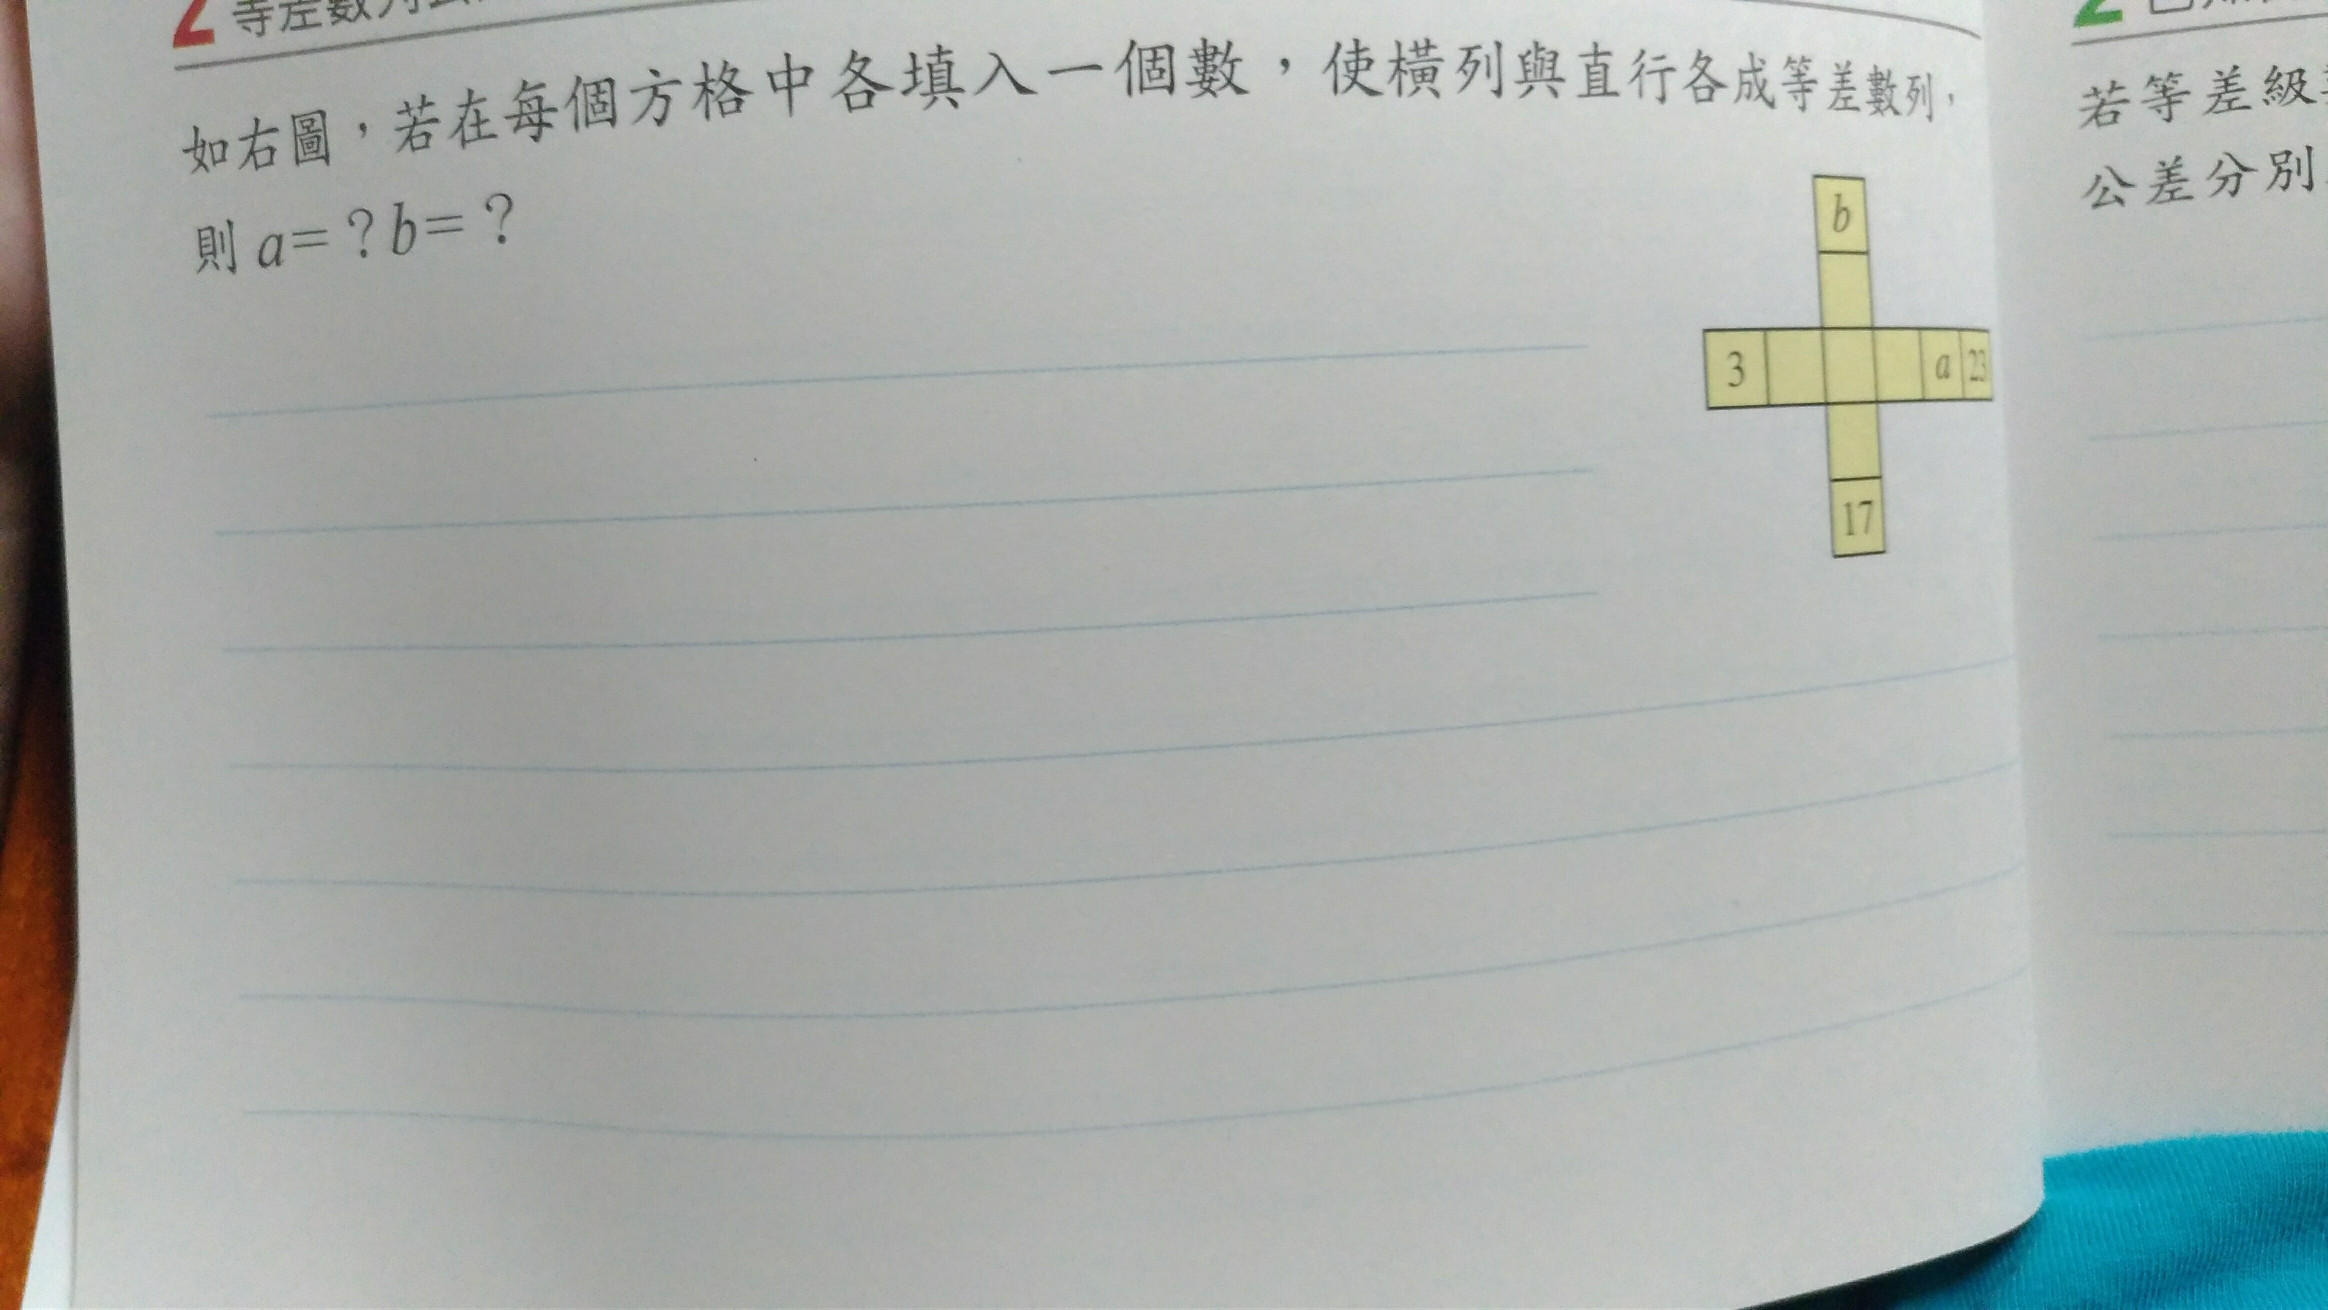 2 等差數列
如右圖，若在每個方格中各填入一個數，使橫列與直行各成等差數列，
則 a=？b=？
b
3 a 23
17
2
若等差級
公差分別